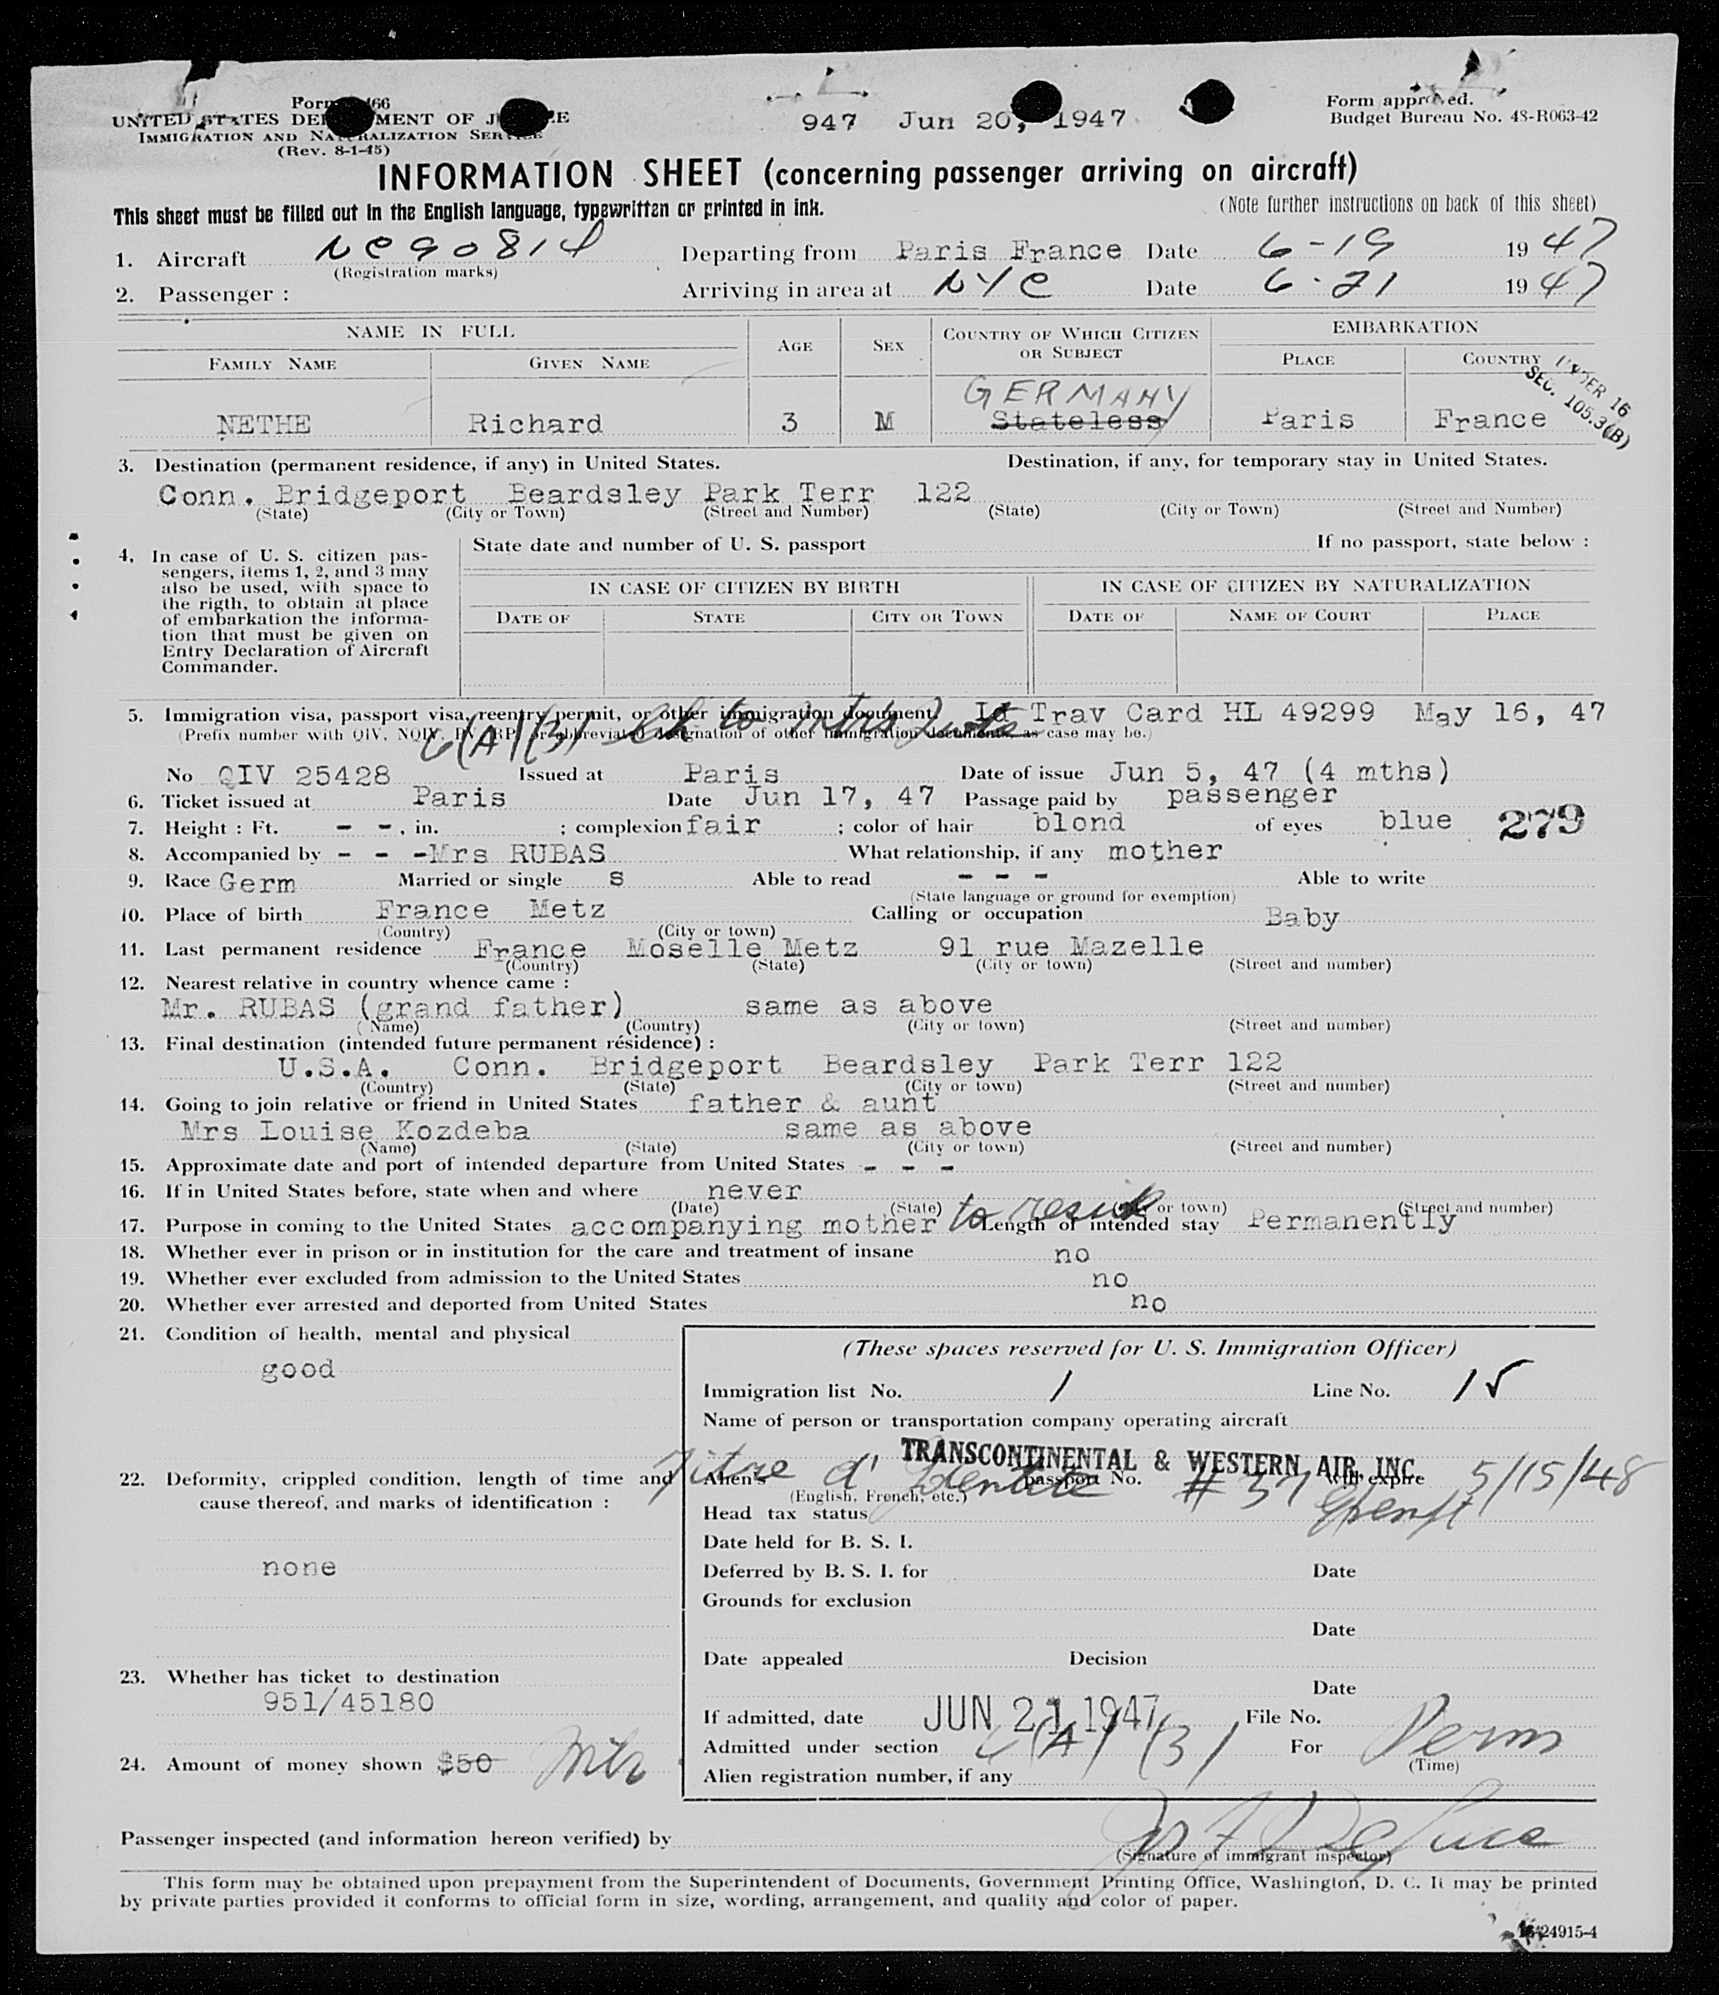 UNITED STATES DEPARTMENT OF JUSTICE
IMMIGRATION AND NATURALIZATION SERVICE
(Rev. 8-1-45)
947 Jun 20, 1947
Form approved.
Budget Bureau No. 43-R063-42
INFORMATION SHEET (concerning passenger arriving on aircraft)
This sheet must be filled out in the English language, typewritten or printed in ink. (Note further instructions on back of this sheet)
1. Aircraft NC90814 Departing from Paris France Date 6-19 1947
(Registration marks)
2. Passenger : Arriving in area at NYC Date 6-21 1947
NAME IN FULL AGE SEX COUNTRY OF WHICH CITIZEN OR SUBJECT EMBARKATION
FAMILY NAME GIVEN NAME PLACE COUNTRY
UNDER 16
SEC. 105.3(B)
GERMANY
NETHE Richard 3 M Stateless Paris France
3. Destination (permanent residence, if any) in United States. Destination, if any, for temporary stay in United States.
Conn. Bridgeport Beardsley Park Terr 122
(State) (City or Town) (Street and Number) (State) (City or Town) (Street and Number)
4. In case of U. S. citizen pas-
sengers, items 1, 2, and 3 may
also be used, with space to
the rigth, to obtain at place
of embarkation the informa-
tion that must be given on
Entry Declaration of Aircraft
Commander.
State date and number of U. S. passport If no passport, state below :
IN CASE OF CITIZEN BY BIRTH IN CASE OF CITIZEN BY NATURALIZATION
DATE OF STATE CITY OR TOWN DATE OF NAME OF COURT PLACE
5. Immigration visa, passport visa, reentry permit, or other immigration document. Id Trav Card HL 49299 May 16, 47
(Prefix number with QIV, NQIV, PV, RP, or abbreviated designation of other immigration documents, as case may be.)
6(A)(3)
No QIV 25428 Issued at Paris Date of issue Jun 5, 47 (4 mths)
6. Ticket issued at Paris Date Jun 17, 47 Passage paid by passenger
7. Height : Ft. - -, in. ; complexion fair ; color of hair blond of eyes blue 279
8. Accompanied by - - -Mrs RUBAS What relationship, if any mother
9. Race Germ Married or single s Able to read - - - Able to write
(State language or ground for exemption)
10. Place of birth France Metz Calling or occupation Baby
(Country) (City or town)
11. Last permanent residence France Moselle Metz 91 rue Mazelle
(Country) (State) (City or town) (Street and number)
12. Nearest relative in country whence came :
Mr. RUBAS (grand father) same as above
(Name) (Country) (City or town) (Street and number)
13. Final destination (intended future permanent résidence) :
U.S.A. Conn. Bridgeport Beardsley Park Terr 122
(Country) (State) (City or town) (Street and number)
14. Going to join relative or friend in United States father & aunt
Mrs Louise Kozdeba same as above
(Name) (State) (City or town) (Street and number)
15. Approximate date and port of intended departure from United States - - -
16. If in United States before, state when and where never
(Date) (State) (City or town) (Street and number)
17. Purpose in coming to the United States accompanying mother to reside Length of intended stay Permanently
18. Whether ever in prison or in institution for the care and treatment of insane no
19. Whether ever excluded from admission to the United States no
20. Whether ever arrested and deported from United States no
21. Condition of health, mental and physical
good
22. Deformity, crippled condition, length of time and
cause thereof, and marks of identification :
none
23. Whether has ticket to destination
951/45180
24. Amount of money shown $50
(These spaces reserved for U. S. Immigration Officer)
Immigration list No. 1 Line No. 15
Name of person or transportation company operating aircraft
TRANSCONTINENTAL & WESTERN AIR, INC.
Titre d' Identite # 37 5/15/48
Alien's passport No. will expire
(English, French, etc.)
Head tax status Exempt
Date held for B. S. I.
Deferred by B. S. I. for Date
Grounds for exclusion
Date
Date appealed Decision
Date
If admitted, date JUN 21 1947 File No.
Admitted under section 6(A)(3) For Perm
(Time)
Alien registration number, if any
Passenger inspected (and information hereon verified) by
(Signature of immigrant inspector)
This form may be obtained upon prepayment from the Superintendent of Documents, Government Printing Office, Washington, D. C. It may be printed
by private parties provided it conforms to official form in size, wording, arrangement, and quality and color of paper.
16-24915-4